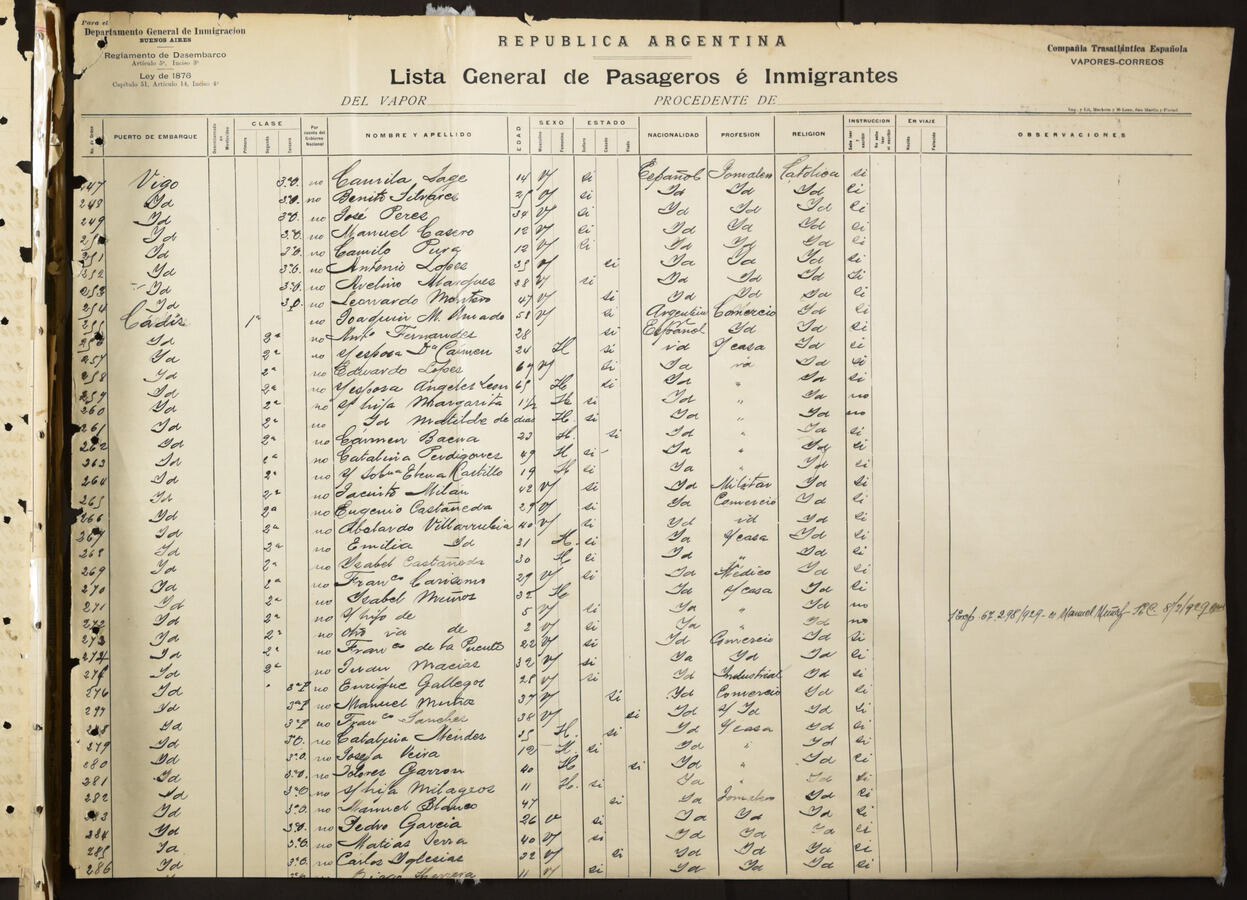 Para el
Departamento General de Inmigracion
BUENOS AIRES
Reglamento de Desembarco
Artículo 5º, Inciso 3º
Ley de 1876
Capítulo 51, Artículo 14, Inciso 4º
REPUBLICA ARGENTINA
Lista General de Pasageros é Inmigrantes
DEL VAPOR PROCEDENTE DE
Compañía Trasatlántica Española
VAPORES-CORREOS
No. de Orden PUERTO DE EMBARQUE CLASE Primera Segunda Tercera Por cuenta del Gobierno Nacional NOMBRE Y APELLIDO EDAD SEXO Masculino Femenino ESTADO Soltero Casado Viudo NACIONALIDAD PROFESION RELIGION INSTRUCCION Sabe leer y escribir No sabe leer ni escribir EN VIAJE Nacido Fallecido OBSERVACIONES
247 Vigo 3ª O. no Camila Sage 14 V si Español Jornalero Católica si
248 Id 3ª O. no Benito Silvares 25 V si Id Id Id si
249 Id 3ª O. no José Peres 34 V si Id Id Id si
250 Id 3ª O. no Manuel Casero 12 V si Id Id Id si
251 Id 3ª O. no Camilo Pura 12 V si Id Id Id si
252 Id 3ª O. no Antonio Lopes 35 V si Id Id Id si
253 Id 3ª O. no Avelino Marques 28 V si Id Id Id si
254 Id 3ª O. no Leonardo Montero 47 V si Id Id Id si
255 Cádis 1ª no Joaquin M. Amado 58 V si Argentina Comercio Id si
256 Id 2ª no Antº Fernandes 28 si Español Id Id si
257 Id 2ª no y esposa Dª Carmen 24 H si id y casa Id si
258 Id 2ª no Eduardo Lopes 69 V si Id id Id si
259 Id 2ª no y esposa Angeles Leon 65 H si Id " Id si
260 Id 2ª no s/ hija Margarita 1½ H si Id " Id no
261 Id 2ª no Id Matilde de dias H. si Id " Id no
262 Id 2ª no Carmen Baena 23 H. si Id " Id si
263 Id 2ª no Catalina Perdigones 49 H si Id " Id si
264 Id 2ª no y sobª Elena Castillo 19 H si Id " Id si
265 Id 2ª no Jacinto Milan 42 V si Id Militar Id si
266 Id 2ª no Eugenio Castañeda 29 V si Id Comercio Id si
267 Id 2ª no Abelardo Villarrubia 40 V si Id id Id si
268 Id 2ª no Emilia Id 31 H. si Id y casa Id si
269 Id 2ª no Isabel Castañeda 30 H si Id " Id si
270 Id 2ª no Franco Carisomo 29 V si Id Médico Id si
271 Id 2ª no Isabel Muños 32 H Id y casa Id si
272 Id 2ª no s/ hijo de 5 V si Id " Id no 1 Exp 67.298/929 - Manuel Muñoz - 8/7/929
273 Id 2ª no Otro id de 2 V si Id " Id no
274 Id 2ª no Franco de la Puente 22 V si Id Comercio Id si
275 Id 2ª no Juan Macias 32 V si Id Id Id si
276 Id 3ª P no Enrique Gallegos 28 V si Id Industrial Id si
277 Id 3ª P no Manuel Muños 37 V si Id Comercio Id si
278 Id 3ª P no Franco Sanches 38 V si Id s/ Id Id si
279 Id 3ª O. no Catalina Mendes 25 H. si Id y casa Id si
280 Id 3ª O. no Josefa Veira 12 H. si Id " Id si
281 Id 3ª O. no Dolores Garron 40 H si Id " Id si
282 Id 3ª O. no s/ hija Milagros 11 H. si Id Id si
283 Id 3ª O. no Manuel Blanco 47 si Id Jornalero Id si
284 Id 3ª O. no Pedro Garcia 26 V si Id Id Id si
285 Id 3ª O. no Matias Serra 40 V si Id Id Id si
286 Id 3ª O. no Carlos Yglesias 32 V si Id Id Id si
Diego Herrera 11 V si Id Id Id si